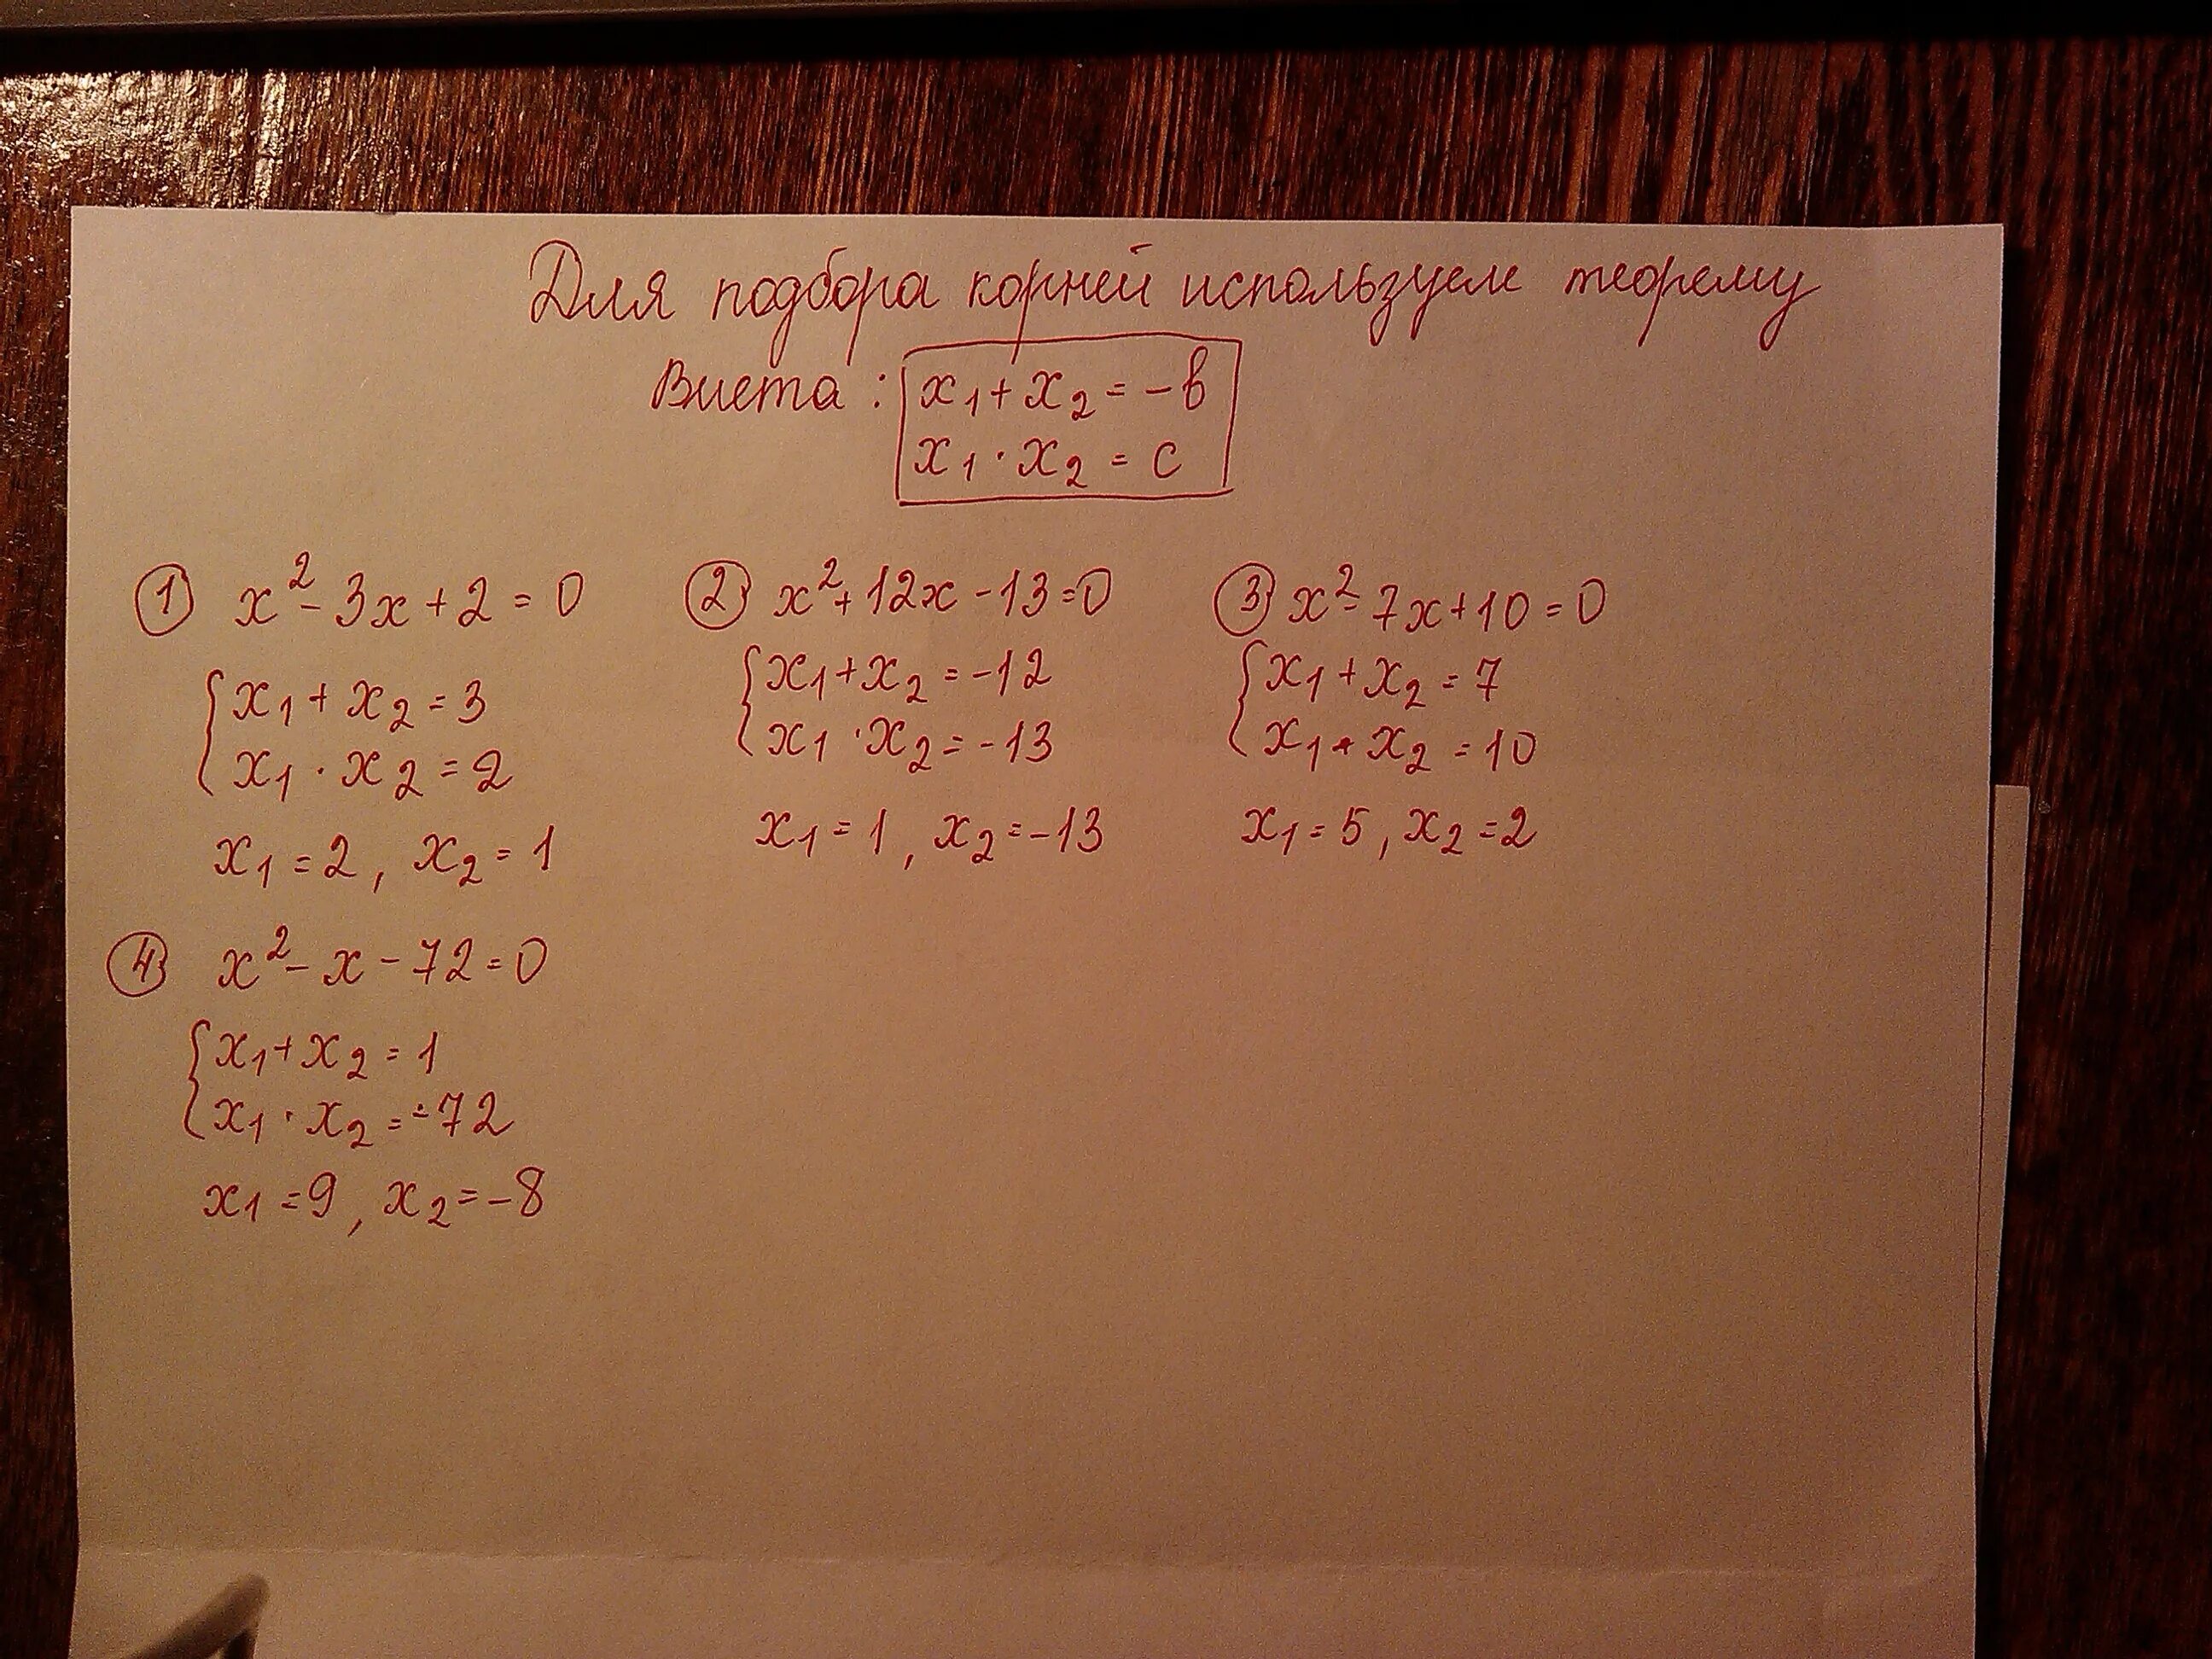 Для подбора корней используем теорему
Виета: x₁+x₂=-в
x₁·x₂=c
① x²-3x+2=0
{x₁+x₂=3
x₁·x₂=2
x₁=2, x₂=1
② x²+12x-13=0
{x₁+x₂=-12
x₁·x₂=-13
x₁=1, x₂=-13
③ x²-7x+10=0
{x₁+x₂=7
x₁·x₂=10
x₁=5, x₂=2
④ x²-x-72=0
{x₁+x₂=1
x₁·x₂=-72
x₁=9, x₂=-8